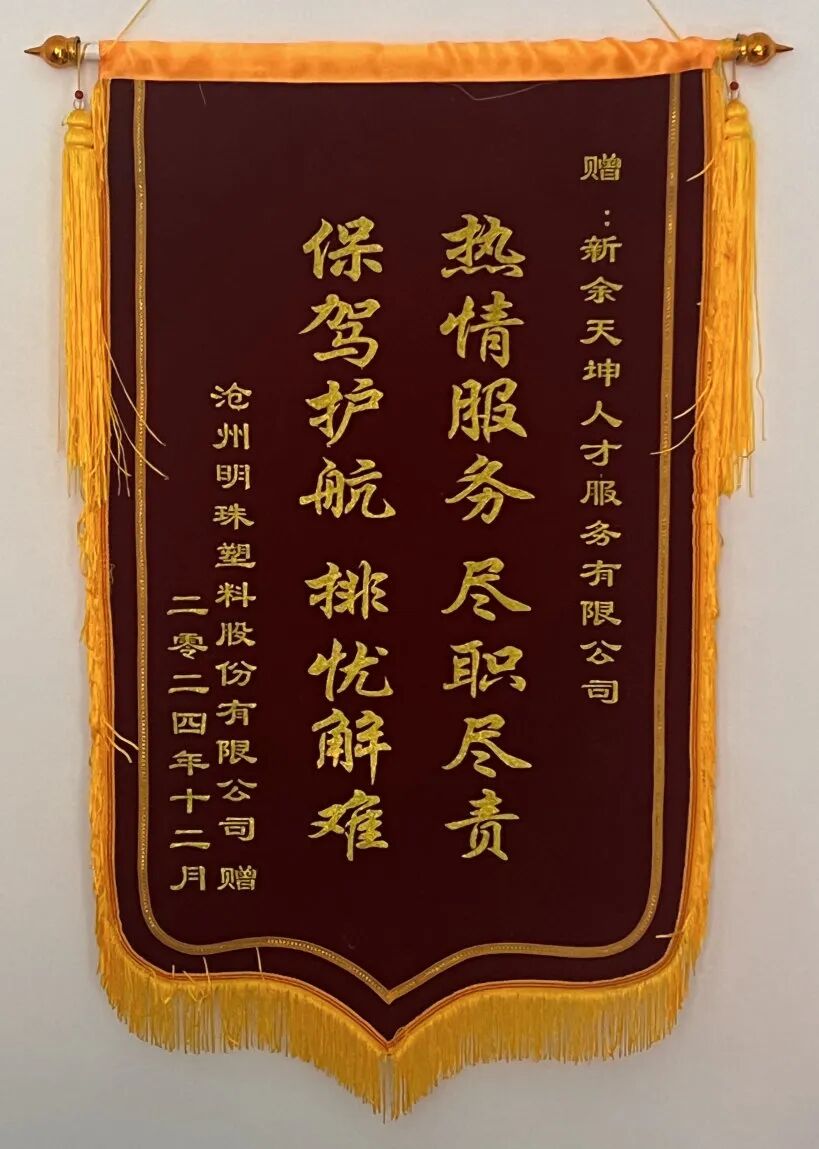 赠：新余天坤人才服务有限公司
热情服务 尽职尽责
保驾护航 排忧解难
沧州明珠塑料股份有限公司 赠
二零二四年十二月